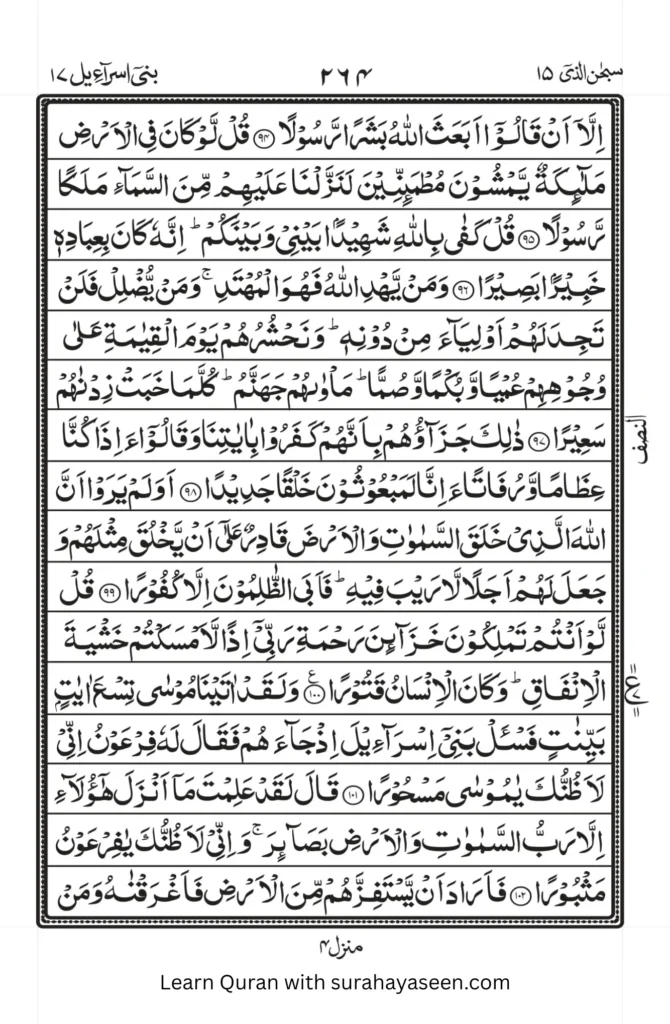 سبحٰن الذی ١٥
٢٦٤
بنیٓ اسرآءیل ١٧
اِلَّاۤ اَنْ قَالُوْۤا اَبَعَثَ اللّٰهُ بَشَرًا رَّسُوْلًا ﴿٩٤﴾ قُلْ لَّوْ كَانَ فِی الْاَرْضِ
مَلٰٓىِٕكَةٌ یَّمْشُوْنَ مُطْمَىِٕنِّیْنَ لَنَزَّلْنَا عَلَیْهِمْ مِّنَ السَّمَآءِ مَلَكًا
رَّسُوْلًا ﴿٩٥﴾ قُلْ كَفٰی بِاللّٰهِ شَهِیْدًۢا بَیْنِیْ وَ بَیْنَكُمْ ؕ اِنَّهٗ كَانَ بِعِبَادِهٖ
خَبِیْرًۢا بَصِیْرًا ﴿٩٦﴾ وَ مَنْ یَّهْدِ اللّٰهُ فَهُوَ الْمُهْتَدِ ۚ وَ مَنْ یُّضْلِلْ فَلَنْ
تَجِدَ لَهُمْ اَوْلِیَآءَ مِنْ دُوْنِهٖ ؕ وَ نَحْشُرُهُمْ یَوْمَ الْقِیٰمَةِ عَلٰی
وُجُوْهِهِمْ عُمْیًا وَّ بُكْمًا وَّ صُمًّا ؕ مَاْوٰىهُمْ جَهَنَّمُ ؕ كُلَّمَا خَبَتْ زِدْنٰهُمْ
سَعِیْرًا ﴿٩٧﴾ ذٰلِكَ جَزَآؤُهُمْ بِاَنَّهُمْ كَفَرُوْا بِاٰیٰتِنَا وَ قَالُوْۤا ءَاِذَا كُنَّا
النصف
عِظَامًا وَّ رُفَاتًا ءَاِنَّا لَمَبْعُوْثُوْنَ خَلْقًا جَدِیْدًا ﴿٩٨﴾ اَوَ لَمْ یَرَوْا اَنَّ
اللّٰهَ الَّذِیْ خَلَقَ السَّمٰوٰتِ وَ الْاَرْضَ قَادِرٌ عَلٰۤی اَنْ یَّخْلُقَ مِثْلَهُمْ وَ
جَعَلَ لَهُمْ اَجَلًا لَّا رَیْبَ فِیْهِ ؕ فَاَبَی الظّٰلِمُوْنَ اِلَّا كُفُوْرًا ﴿٩٩﴾ قُلْ
لَّوْ اَنْتُمْ تَمْلِكُوْنَ خَزَآىِٕنَ رَحْمَةِ رَبِّیْۤ اِذًا لَّاَمْسَكْتُمْ خَشْیَةَ
الْاِنْفَاقِ ؕ وَ كَانَ الْاِنْسَانُ قَتُوْرًا ﴿١٠٠﴾ ع وَ لَقَدْ اٰتَیْنَا مُوْسٰی تِسْعَ اٰیٰتٍۭ
بَیِّنٰتٍ فَسْـَٔلْ بَنِیْۤ اِسْرَآءِیْلَ اِذْ جَآءَهُمْ فَقَالَ لَهٗ فِرْعَوْنُ اِنِّیْ
لَاَظُنُّكَ یٰمُوْسٰی مَسْحُوْرًا ﴿١٠١﴾ قَالَ لَقَدْ عَلِمْتَ مَاۤ اَنْزَلَ هٰۤؤُلَآءِ
اِلَّا رَبُّ السَّمٰوٰتِ وَ الْاَرْضِ بَصَآىِٕرَ ۚ وَ اِنِّیْ لَاَظُنُّكَ یٰفِرْعَوْنُ
مَثْبُوْرًا ﴿١٠٢﴾ فَاَرَادَ اَنْ یَّسْتَفِزَّهُمْ مِّنَ الْاَرْضِ فَاَغْرَقْنٰهُ وَ مَنْ
منزل ٤
Learn Quran with surahayaseen.com